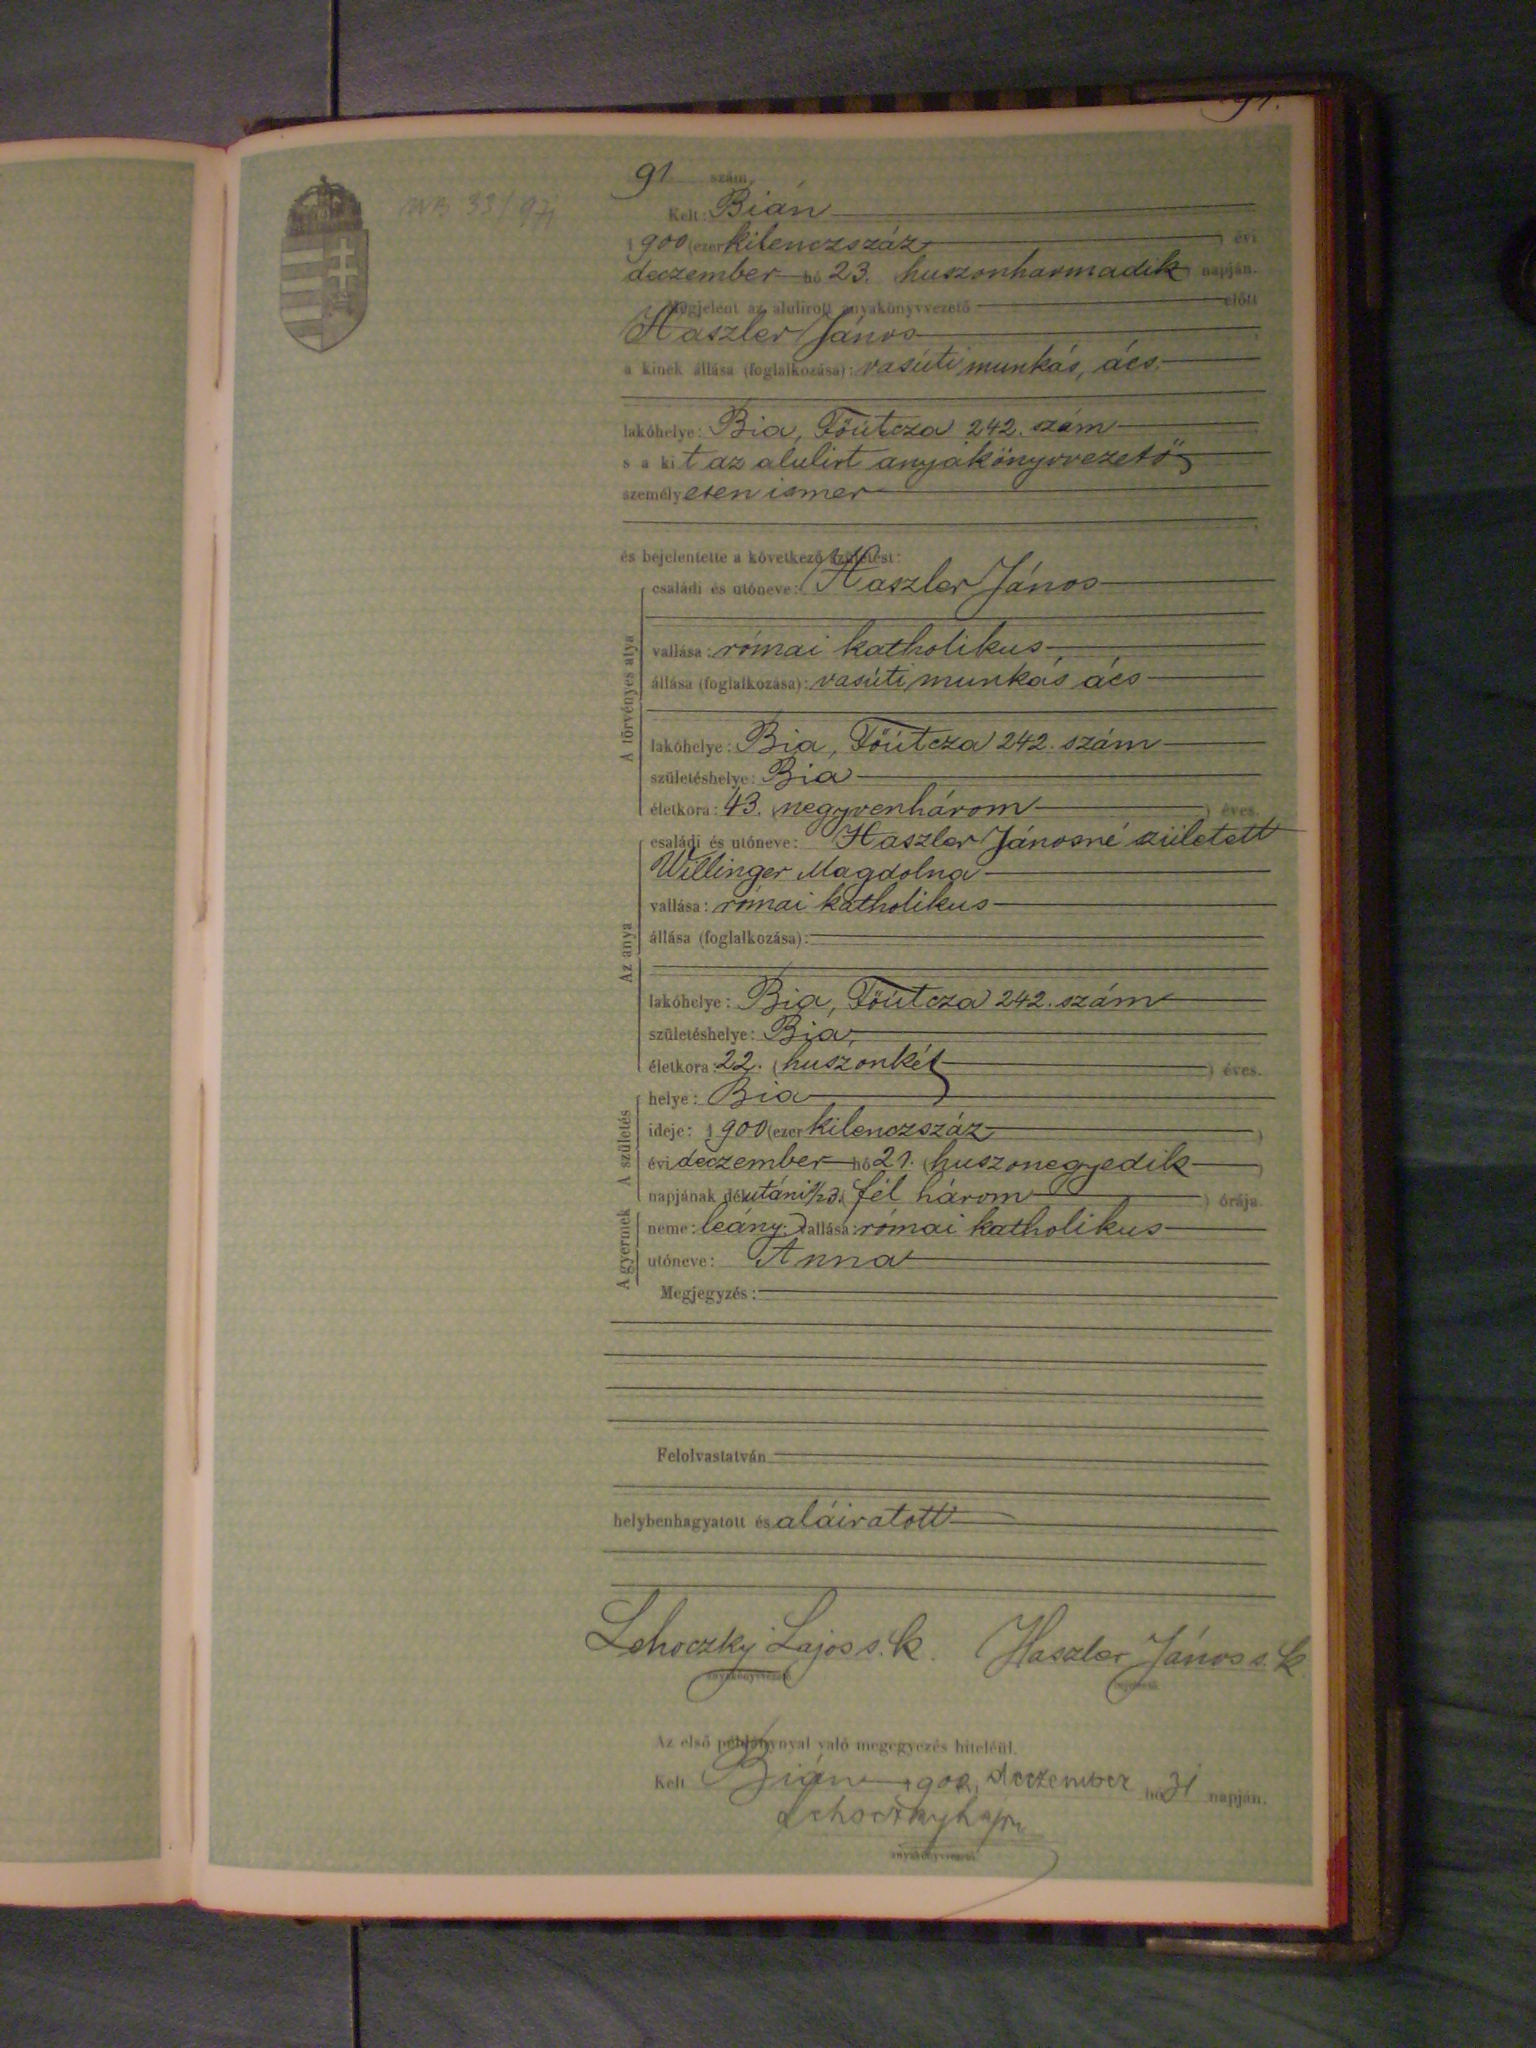 91.
91 szám.
Kelt: Bián
1900 (ezerkilenczszáz) évi
deczember hó 23. huszonharmadik napján.
Megjelent az alulirott anyakönyvvezető előtt
Haszler János
a kinek állása (foglalkozása): vasúti munkás, ács.
lakóhelye: Bia, Főútcza 242. szám
s a kit az alulirt anyakönyvvezető
személyesen ismer
és bejelentette a következő születést:
A törvényes atya
családi és utóneve: Haszler János
vallása: római katholikus
állása (foglalkozása): vasúti munkás ács
lakóhelye: Bia, Főútcza 242. szám
születéshelye: Bia
életkora: 43. (negyvenhárom) éves.
Az anya
családi és utóneve: Haszler Jánosné született
Willinger Magdolna
vallása: római katholikus
állása (foglalkozása):
lakóhelye: Bia, Főútcza 242. szám
születéshelye: Bia,
életkora: 22. (huszonkét) éves.
A születés
helye: Bia
ideje: 1900 (ezerkilenczszáz)
évi deczember hó 21. (huszonegyedik)
napjának délutáni ½3. (fél három) órája.
A gyermek
neme: leány; vallása: római katholikus
utóneve: Anna
Megjegyzés:
Felolvastatván
helybenhagyatott és aláiratott
Lehoczky Lajos s. k. Haszler János s. k.
anyakönyvvezető
Az első példánynyal való megegyezés hiteléül.
Kelt Bián 1900, deczember hó 31 napján.
Lehoczky Lajos
anyakönyvvezető